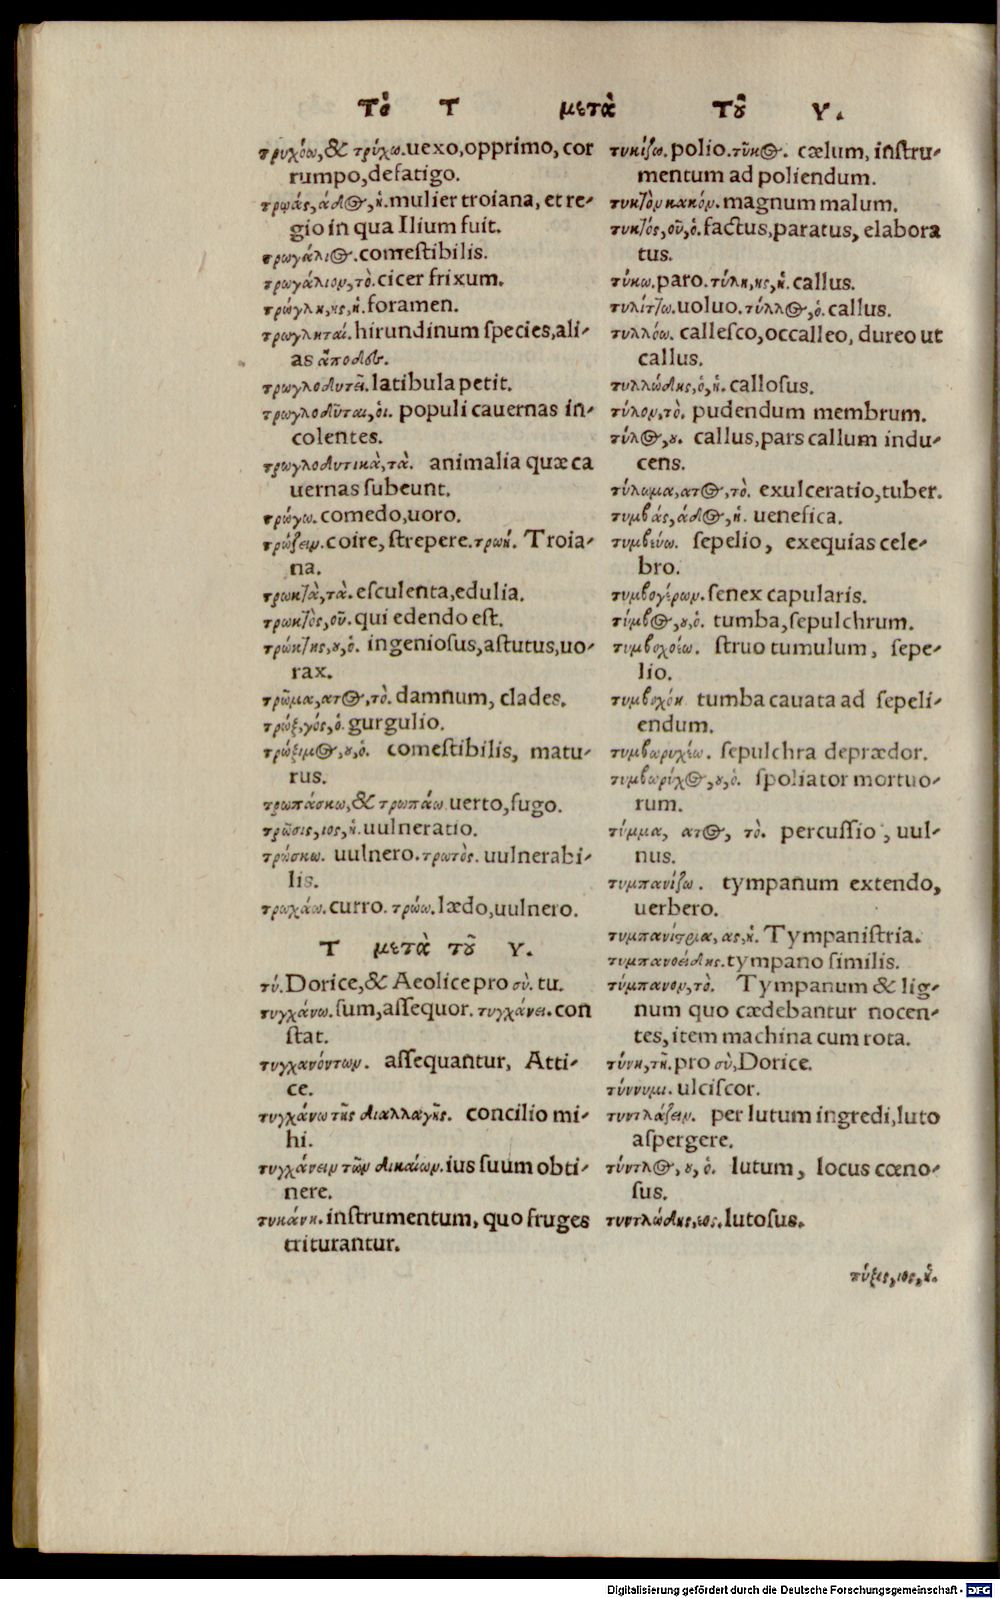 Τὸ Τ μετὰ τοῦ Υ.
τρυχόω, & τρύχω. uexo, opprimo, cor
rumpo, defatigo.
τρωάς, άδος, ἡ. mulier troiana, et re-
gio in qua Ilium fuit.
τρωγάλιος. comestibilis.
τρωγάλιον, τὸ. cicer frixum.
τρώγλη, ης, ἡ. foramen.
τρωγληταί. hirundinum species, ali-
as ἄποδες.
τρωγλοδυτεῖ. latibula petit.
τρωγλοδῦται, οἱ. populi cauernas in-
colentes.
τρωγλοδυτικὰ, τὰ. animalia quæ ca
uernas subeunt.
τρώγω. comedo, uoro.
τρώζειν. coire, strepere. τρωή. Troia-
na.
τρωκτὰ, τὰ. esculenta, edulia.
τρωκτὸς, οῦ. qui edendo est.
τρώκτης, ου, ὁ. ingeniosus, astutus, uo-
rax.
τρῶμα, ατος, τὸ. damnum, clades.
τρώξ, γός, ὁ. gurgulio.
τρώξιμος, ου, ὁ. comestibilis, matu-
rus.
τρωπάσκω, & τρωπάω uerto, fugo.
τρῶσις, ιος, ἡ. uulneratio.
τρώσκω. uulnero. τρωτὸς. uulnerabi-
lis.
τρωχάω. curro. τρώω. lædo, uulnero.
Τ μετὰ τοῦ Υ.
τύ. Dorice, & Aeolice pro σὺ. tu.
τυγχάνω. sum, assequor. τυγχάνει. con
stat.
τυγχανόντων. assequantur, Atti-
ce.
τυγχάνω τῆς διαλλαγῆς. concilio mi-
hi.
τυγχάνειν τῶν δικαίων. ius suum obti-
nere.
τυκάνη. instrumentum, quo fruges
triturantur.
τυκίζω. polio. τῦκος. cælum, instru-
mentum ad poliendum.
τυκτὸν κακόν. magnum malum.
τυκτός, οῦ, ὁ. factus, paratus, elabora
tus.
τύκω. paro. τύλη, ης, ἡ. callus.
τυλίττω. uoluo. τύλλος, ὁ. callus.
τυλλόω. callesco, occalleo, dureo ut
callus.
τυλλώδης, ὁ, ἡ. callosus.
τύλον, τὸ. pudendum membrum.
τύλος, ου. callus, pars callum indu-
cens.
τύλωμα, ατος, τὸ. exulceratio, tuber.
τυμβάς, άδος, ἡ. uenefica.
τυμβεύω. sepelio, exequias cele-
bro.
τυμβογέρων. senex capularis.
τύμβος, ου, ὁ. tumba, sepulchrum.
τυμβοχοέω. struo tumulum, sepe-
lio.
τυμβοχόη tumba cauata ad sepeli-
endum.
τυμβωρυχέω. sepulchra deprædor.
τυμβωρύχος, ου, ὁ. spoliator mortuo-
rum.
τύμμα, ατος, τὸ. percussio, uul-
nus.
τυμπανίζω. tympanum extendo,
uerbero.
τυμπανίστρια, ας, ἡ. Tympanistria.
τυμπανοειδης. tympano similis.
τύμπανον, τὸ. Tympanum & lig-
num quo cædebantur nocen-
tes, item machina cum rota.
τύνη, τῆ. pro σὺ, Dorice.
τύννυμι. ulciscor.
τυντλάζειν. per lutum ingredi, luto
aspergere.
τύντλος, ου, ὁ. lutum, locus cœno-
sus.
τυντλώδης, εος. lutosus.
τύξις, ιος, ἡ.
Digitalisierung gefördert durch die Deutsche Forschungsgemeinschaft - DFG